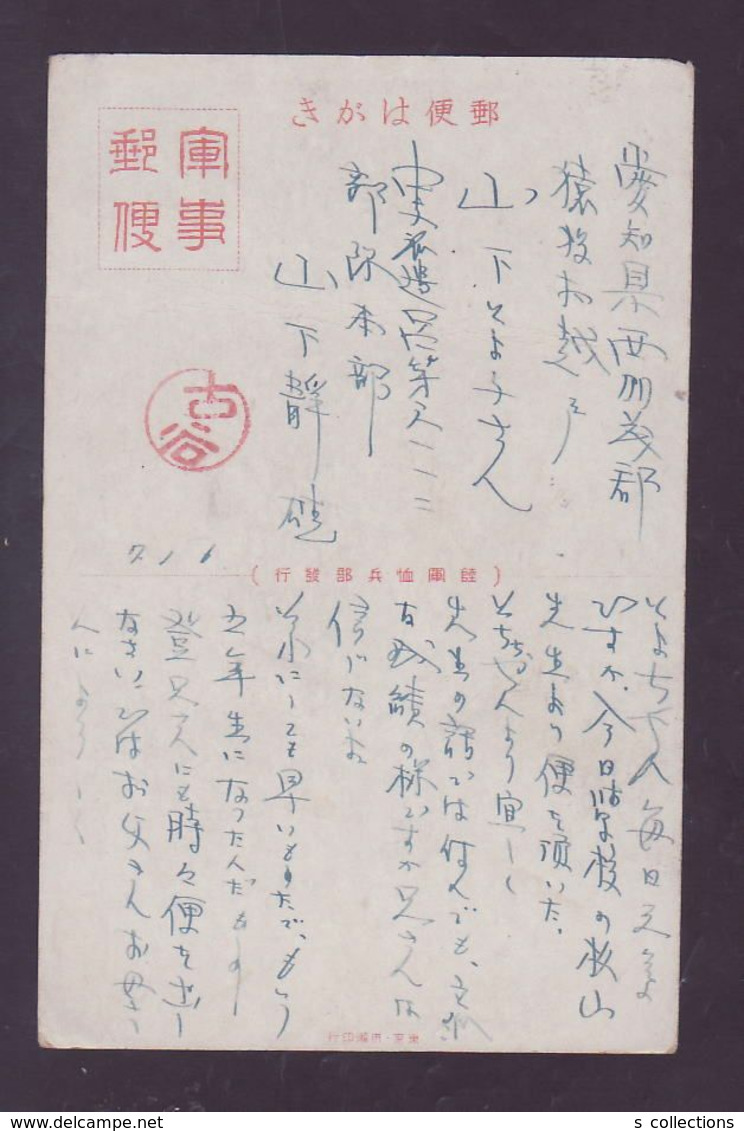 郵便はがき
軍事
郵便
愛知県西加茂郡
猿投村越戸
山下とよ子さん
部隊本部
山下靜
古谷
7. 1. 6
(陸軍恤兵部發行)
とよちやん毎日元気
ですか、今日学校の
先生より便を頂いた。
より宜しく
先生の話では何んでも、
な成績の様ですが兄さんは
信じないよ
にしても早いもので、もう
五年生になつたんだもの
登兄さんにも時々便を出し
なさい、ではお父さんお母さ
んによろしく
東京・印行
s collections